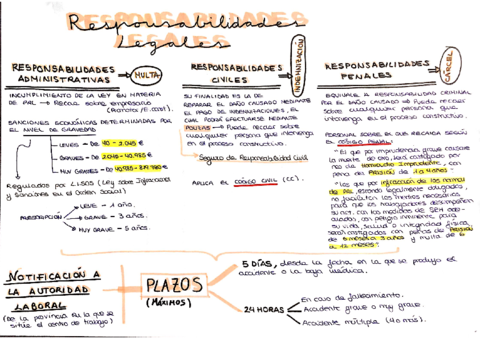 Responsabilidades
Legales
RESPONSABILIDADES
ADMINISTRATIVAS → MULTA
INCUMPLIMIENTO DE LA LEY EN MATERIA
DE PRL → Recae sobre empresario
SANCIONES ECONÓMICAS DETERMINADAS POR
EL NIVEL DE GRAVEDAD
LEVES → De 40 - 2.045 €
GRAVES → De 2.046 - 40.985 €
MUY GRAVES → De 40.985 -
Regulados por LISOS (Ley sobre Infracciones
y Sanciones en el Orden Social)
PRESCRIPCIÓN
LEVE - 1 año.
GRAVE - 3 años.
MUY GRAVE - 5 años.
RESPONSABILIDADES
CIVILES
INDEMNIZACIÓN
SU FINALIDAD ES LA DE
REPARAR EL DAÑO CAUSADO MEDIANTE
EL PAGO DE INDEMNIZACIONES, EL
CUAL PODRÁ EFECTUARSE MEDIANTE
PÓLIZAS → Puede recaer sobre
cualquier persona que intervenga
en el proceso constructivo.
Seguro de Responsabilidad Civil
APLICA EL CÓDIGO CIVIL (CC).
RESPONSABILIDADES
PENALES
CÁRCEL
EQUIVALE A RESPONSABILIDAD CRIMINAL
POR EL DAÑO CAUSADO → Puede recaer
sobre cualquier persona que
intervenga en el proceso constructivo.
PERSONA SOBRE EL QUE RECAIGA SEGÚN
EL CÓDIGO PENAL:
"El que por imprudencia grave causare
la muerte de otro, será castigado por
reo de Homicidio Imprudente, con
pena de PRISIÓN de 1 a 4 años"
"Los que por infracción de las normas
de PRL, estando legalmente obligados,
no faciliten los medios necesarios
para que los trabajadores desempeñen
su act. con las medidas de SEH
con peligro inminente, para
su vida, salud o integridad física,
serán castigados con penas de PRISIÓN
de 6 meses a 3 años y multa de 6
a 12 meses"
NOTIFICACIÓN A
LA AUTORIDAD
LABORAL
(De la provincia en la que se
sitúe el centro de trabajo)
PLAZOS
(MÁXIMOS)
5 DÍAS, desde la fecha en la que se produjo el
accidente o la baja médica.
24 HORAS
En caso de fallecimiento.
Accidente grave o muy grave.
Accidente múltiple (4 o más).